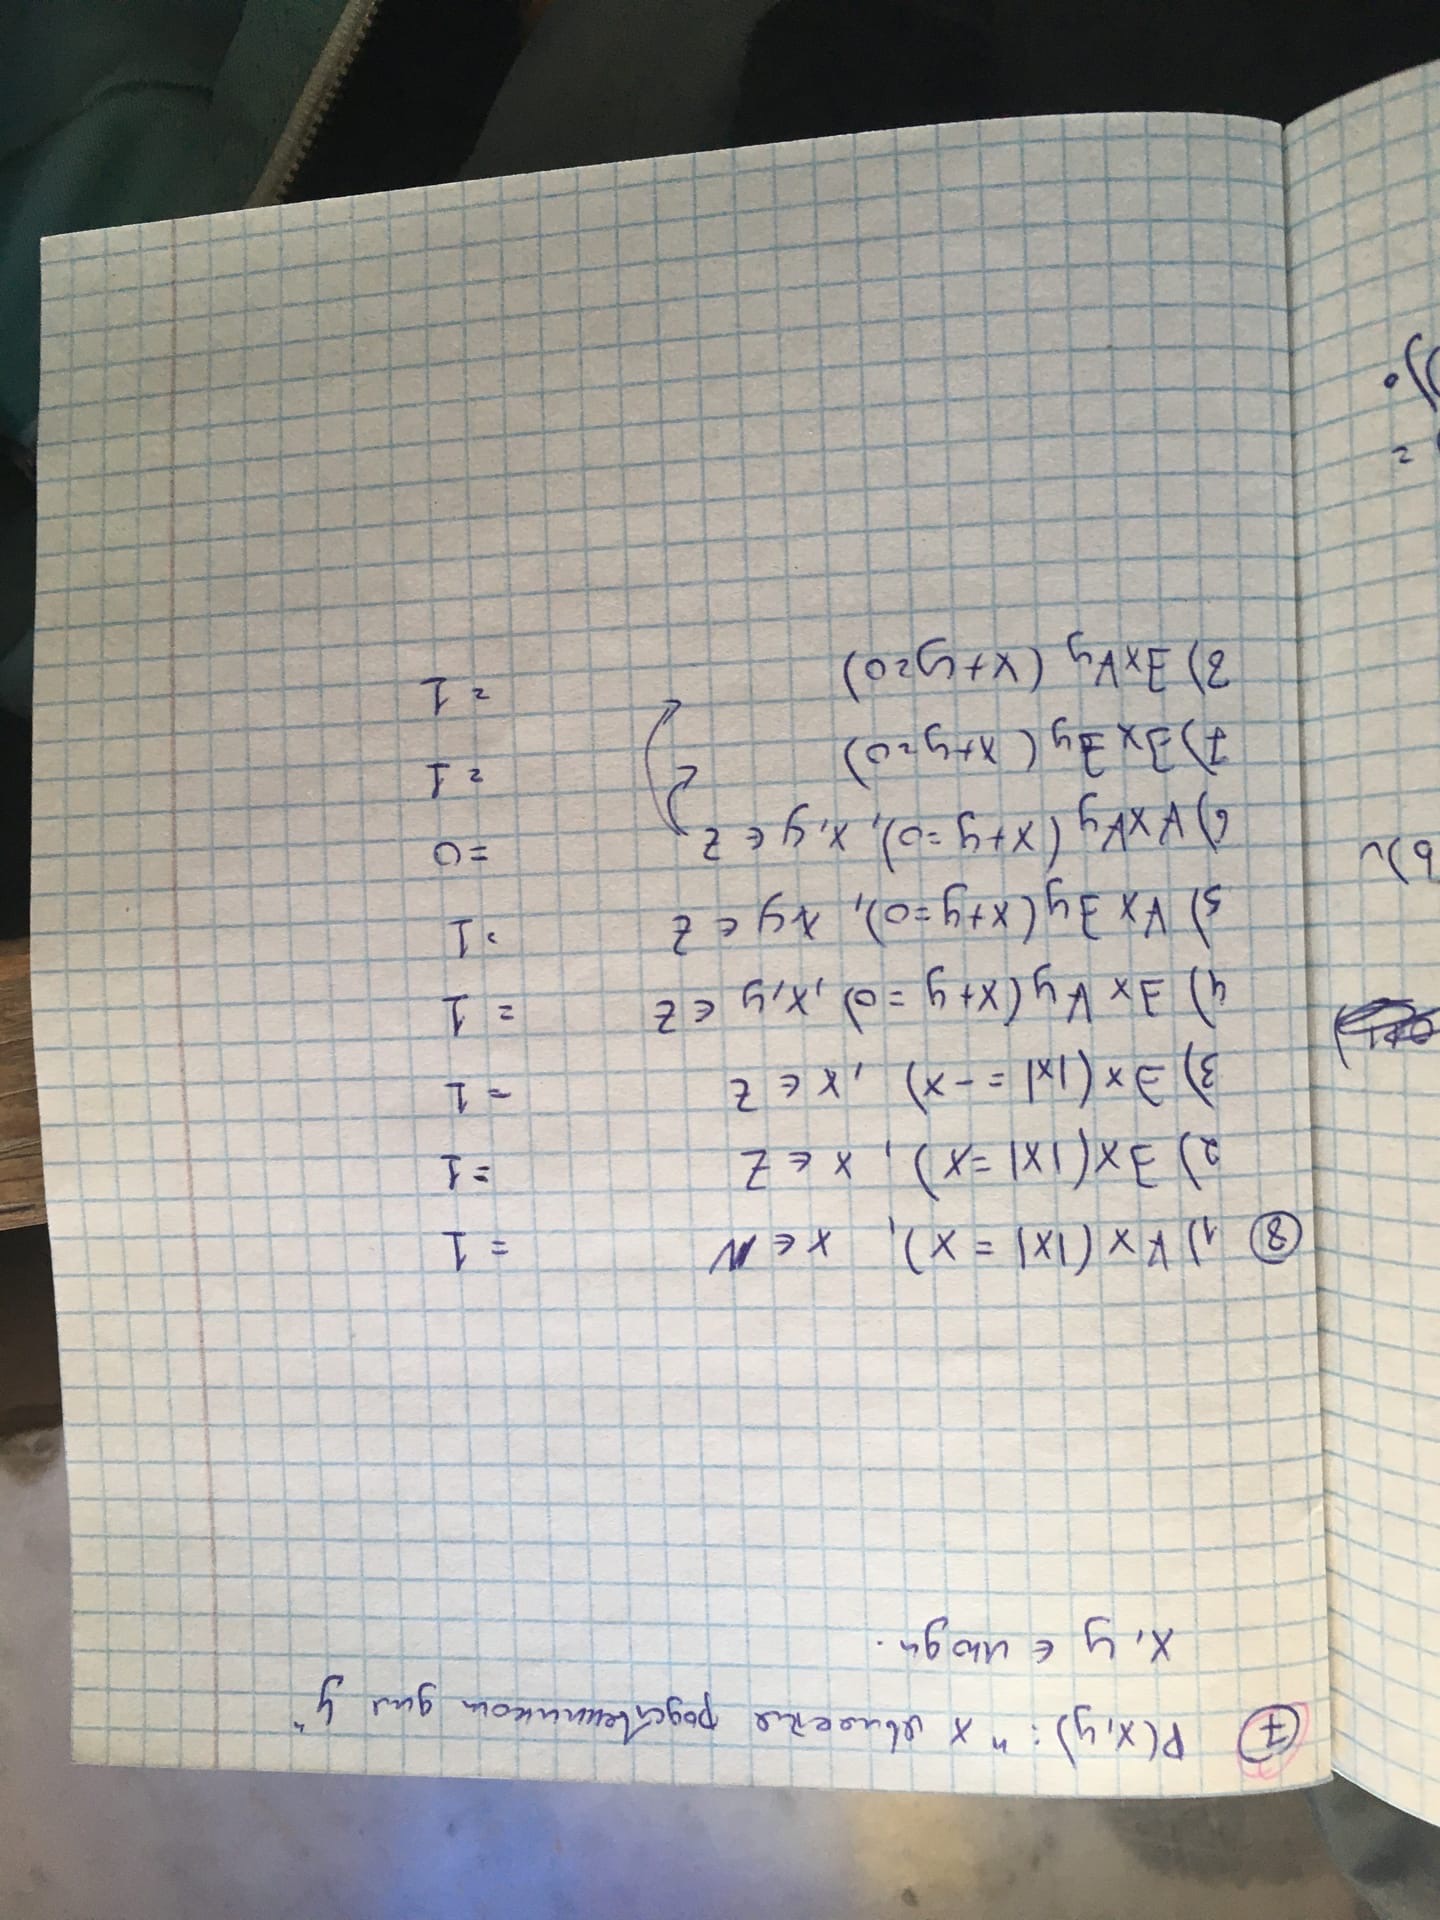 ⑦ P(x,y): "x является родственником для y"
x, y ∈ люди.
⑧ 1) ∀x (|x| = x), x ∈ N = 1
2) ∃x (|x| = x), x ∈ Z = 1
3) ∃x (|x| = -x), x ∈ Z = 1
4) ∃x ∀y (x+y = 0), x,y ∈ Z = 1
5) ∀x ∃y (x+y=0), x,y ∈ Z = 1
6) ∀x∀y (x+y=0), x,y ∈ Z = 0
7) ∃x ∃y (x+y=0) = 1
8) ∃x∀y (x+y=0) = 1
b)
=